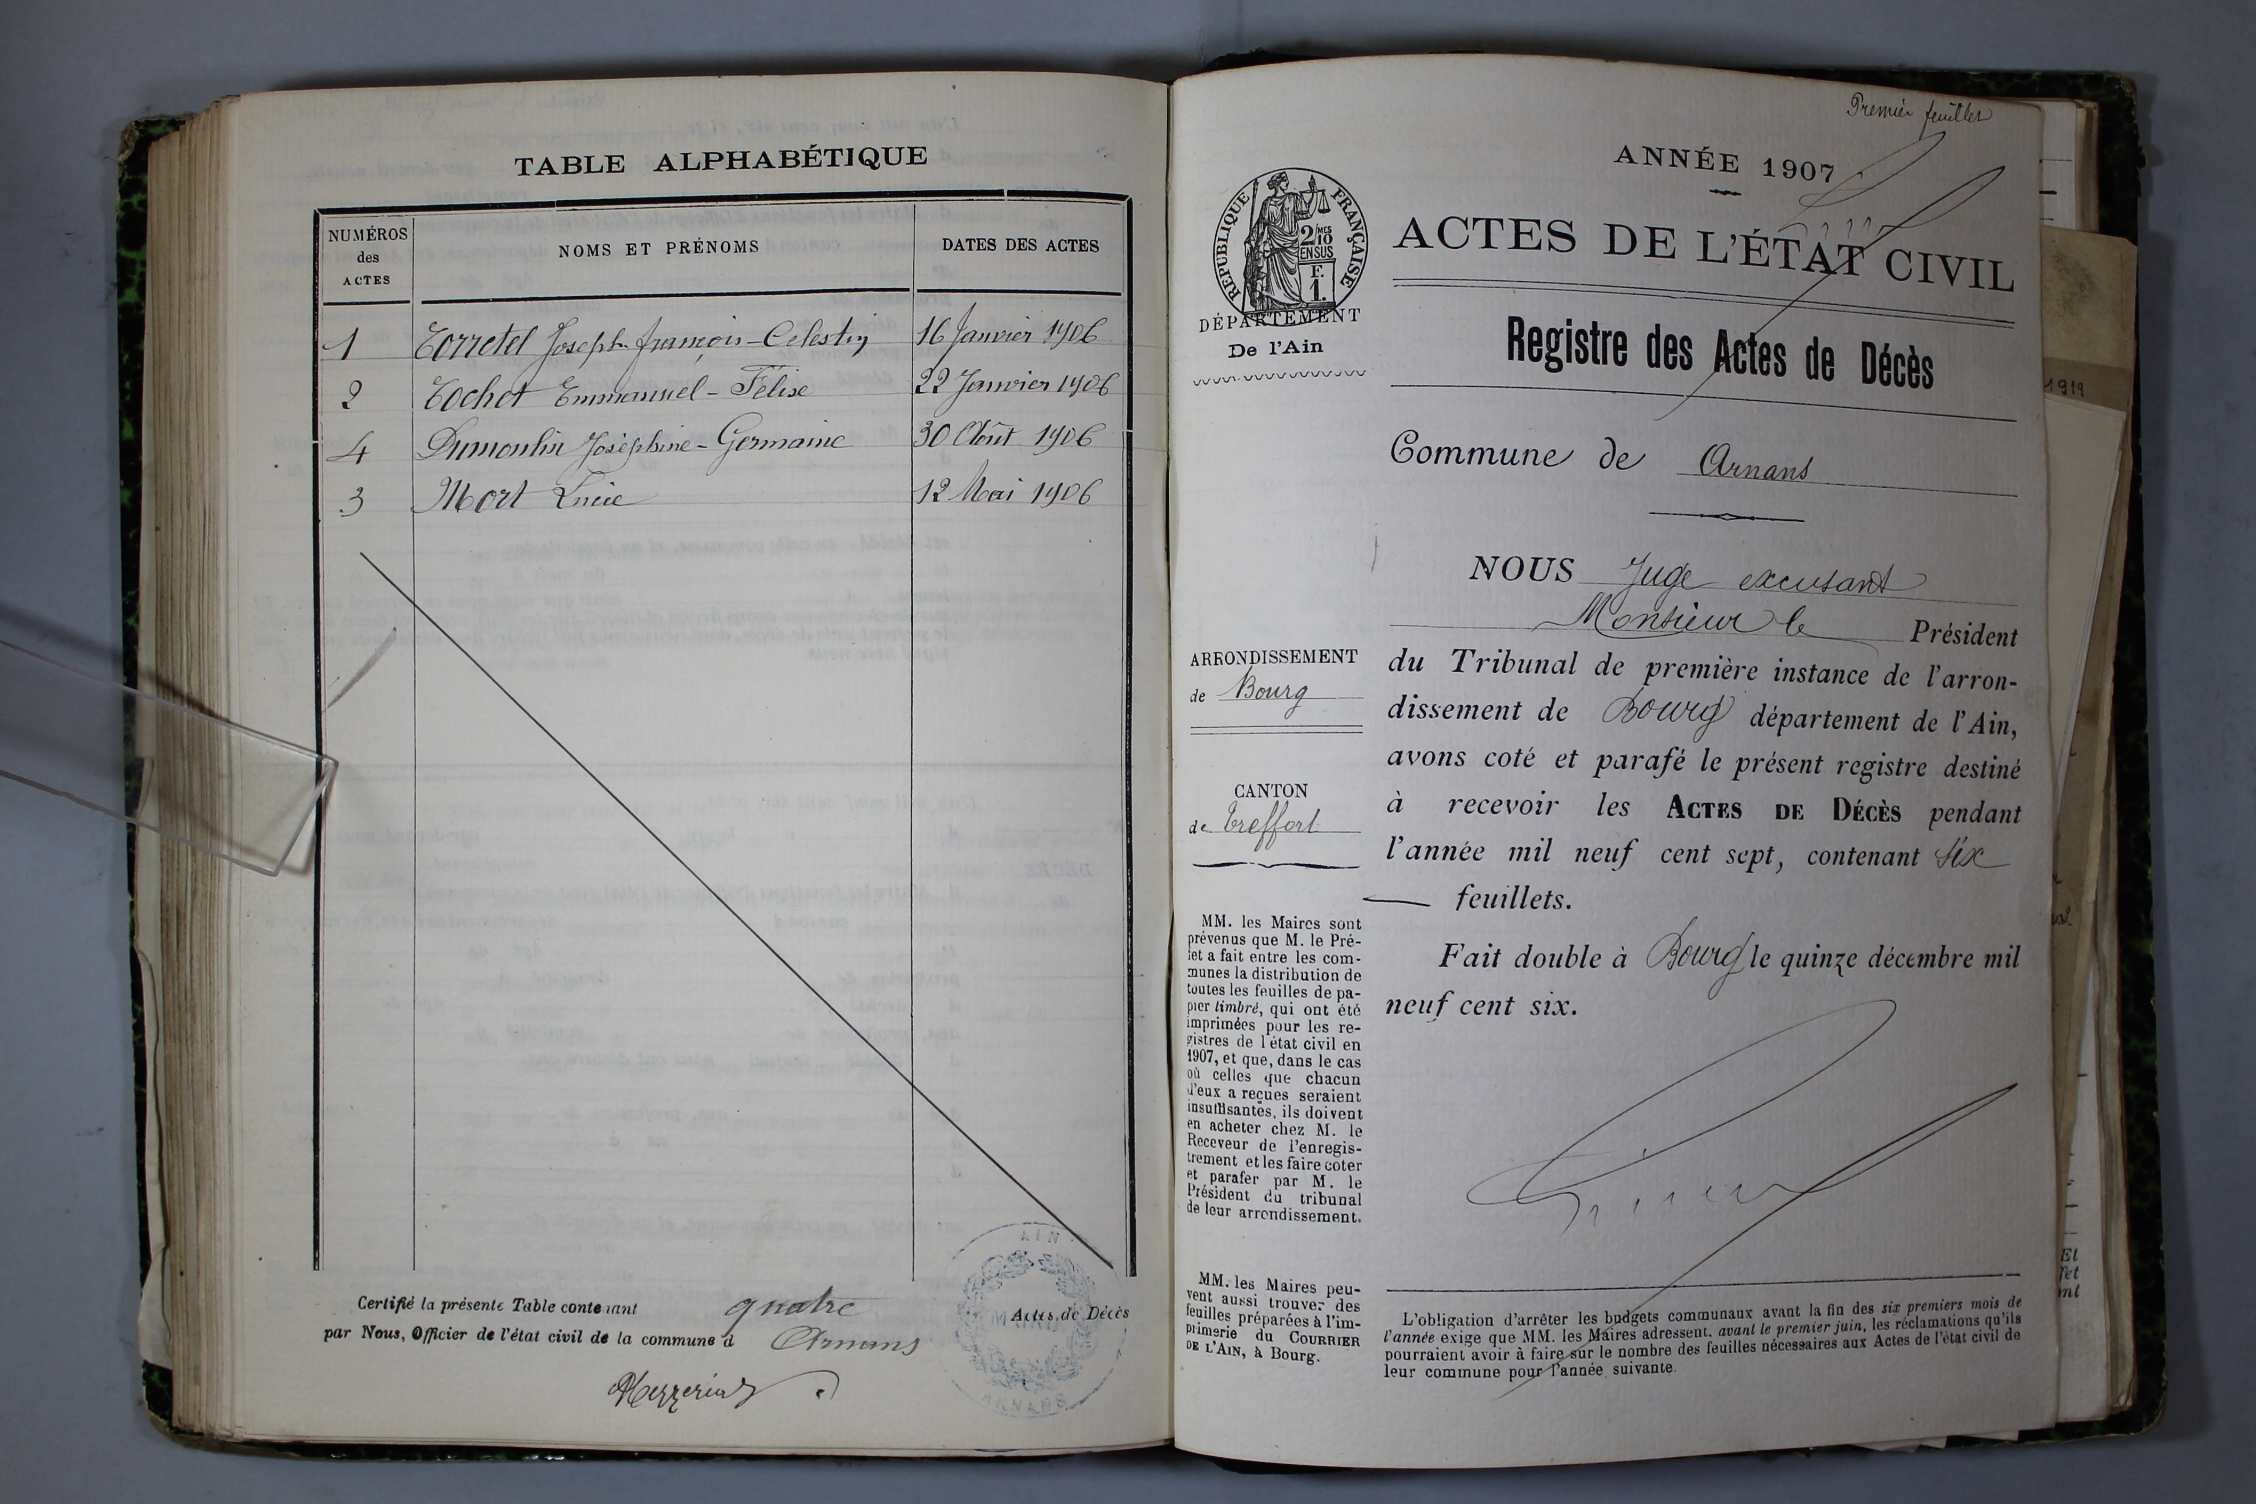 TABLE ALPHABÉTIQUE
NUMÉROS des ACTES
NOMS ET PRÉNOMS
DATES DES ACTES
1 Corretel Joseph françois-Celestin 16 Janvier 1906
2 Cochet Emmanuel-Félise 22 Janvier 1906
4 Dumoulin Joséphine-Germaine 30 Août 1906
3 Mort Lucie 12 Mai 1906
Certifié la présente Table contenant quatre Actes de Décès
par Nous, Officier de l'état civil de la commune d Arnans
AIN
MAIRIE
ARNANS
Premier feuillet
ANNÉE 1907
ACTES DE L'ÉTAT CIVIL
RÉPUBLIQUE FRANÇAISE
2/10 MES
EN SUS
F.
1.
DÉPARTEMENT
De l'Ain
Registre des Actes de Décès
Commune de Arnans
NOUS Juge excusant
Monsieur le Président
du Tribunal de première instance de l'arron-
dissement de Bourg département de l'Ain,
avons coté et parafé le présent registre destiné
à recevoir les ACTES DE DÉCÈS pendant
l'année mil neuf cent sept, contenant six
feuillets.
Fait double à Bourg le quinze décembre mil
neuf cent six.
ARRONDISSEMENT
de Bourg
CANTON
de Treffort
MM. les Maires sont
prévenus que M. le Pré-
fet a fait entre les com-
munes la distribution de
toutes les feuilles de pa-
pier timbré, qui ont été
imprimées pour les re-
gistres de l'état civil en
1907, et que, dans le cas
où celles que chacun
d'eux a reçues seraient
insuffisantes, ils doivent
en acheter chez M. le
Receveur de l'enregis-
trement et les faire coter
et parafer par M. le
Président du tribunal
de leur arrondissement.
MM. les Maires peu-
vent aussi trouver des
feuilles préparées à l'im-
primerie du COURRIER
DE L'AIN, à Bourg.
L'obligation d'arrêter les budgets communaux avant la fin des six premiers mois de
l'année exige que MM. les Maires adressent, avant le premier juin, les réclamations qu'ils
pourraient avoir à faire sur le nombre des feuilles nécessaires aux Actes de l'état civil de
leur commune pour l'année suivante.
1919